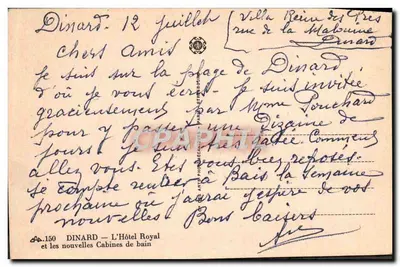 Dinard. 12 juillet
Villa Reine des Prés
rue de la
Dinard
chers amis
Je suis sur la plage de Dinard
d'où je vous écris. Je suis invitée
gracieusement par Mme Pouchard
pour y passer une Dizaine de
jours. Je suis très gatée Comment
allez vous. Etes vous bien reposés.
Je compte rentrer à la semaine
prochaine ou j'aurai j'espère de vos
nouvelles. Bons baisers
150 DINARD — L'Hôtel Royal
et les nouvelles Cabines de bain